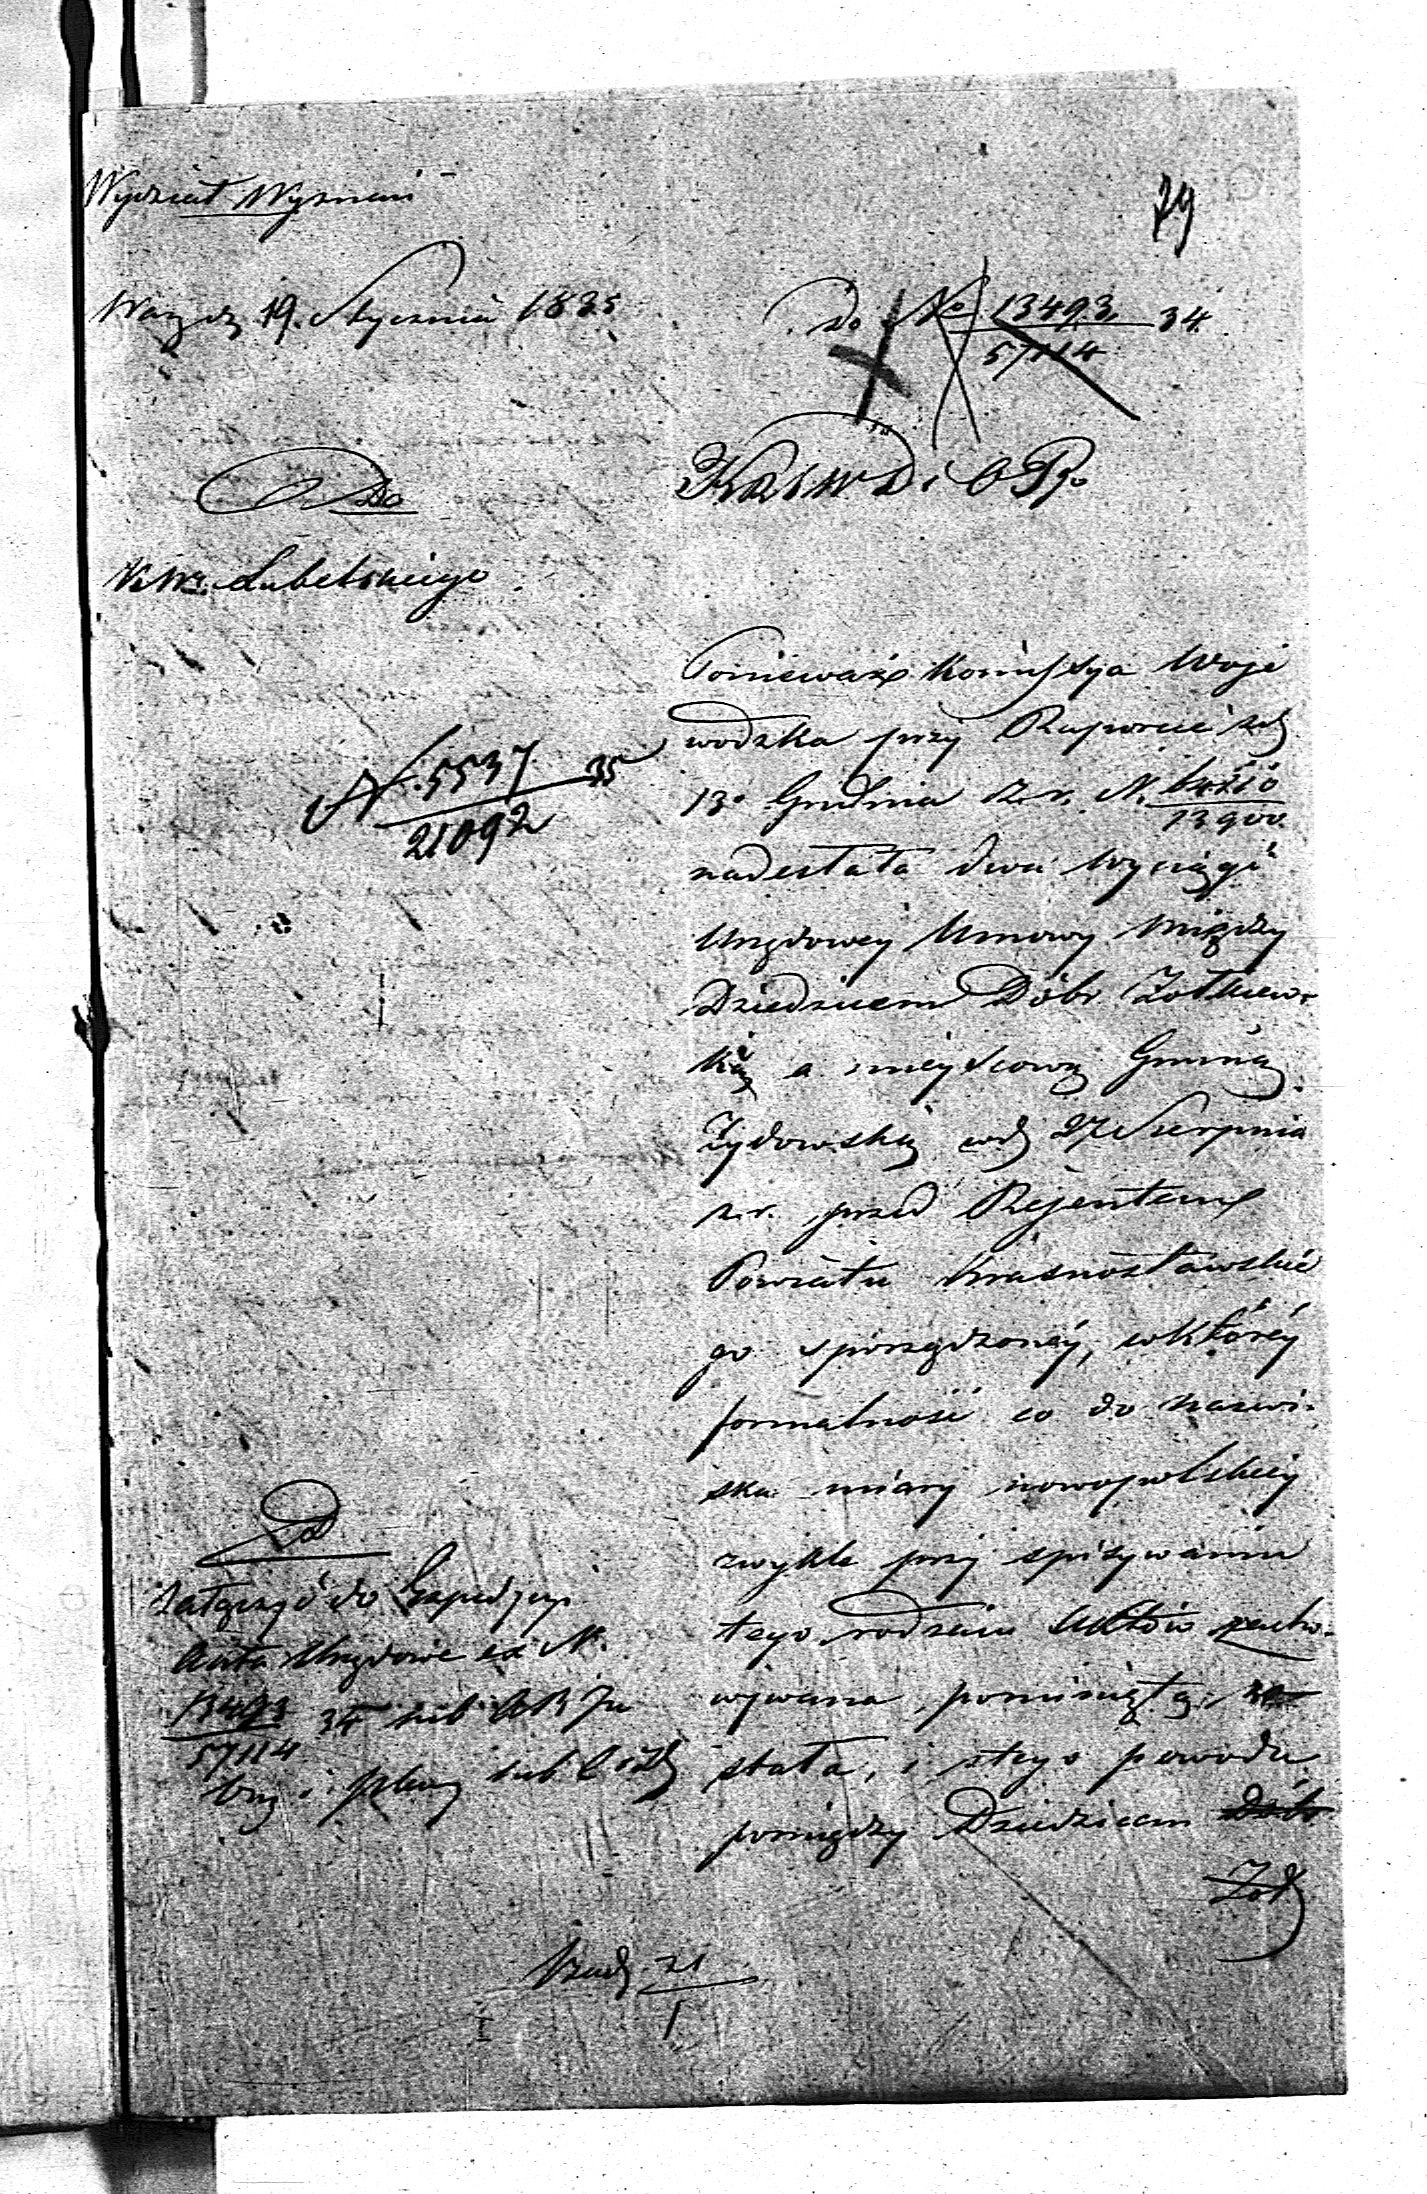 Wydział Wyznań
79
Warz. d. 19. Stycznia 1835
Do No 13493 34.
57114
Do
K R S W D i O P.
K. Wa. Lubelskiego
Ponieważ Kommissya Woje
wodzka przy Raporcie z d.
N. 5537 35
21092
13. Grudnia z. r. N.
nadesłała dwa Wyciągi
Urzędowey Umowy między
Dziedzicem Dóbr Żołkiew-
ką a mieyscową Gminą
Żydowską w d. 27 Sierpnia
z. r. przed Rejentem
Powiatu Krasnostawskie
go sporządzoney, w któréy
formalność co do nazwi-
ska miary nowopolskiey
zwykle przy spisywaniu
tego rodzaiu Aktów zacho-
wywana pominiętą zo
stała, i z tego powodu
pomiędzy Dziedzicem Dóbr
Żoł
Załączyć do Expedycyi
Akta Urzędowe ex N.
13493 34 sub A B
57114
i plany sub
21
1